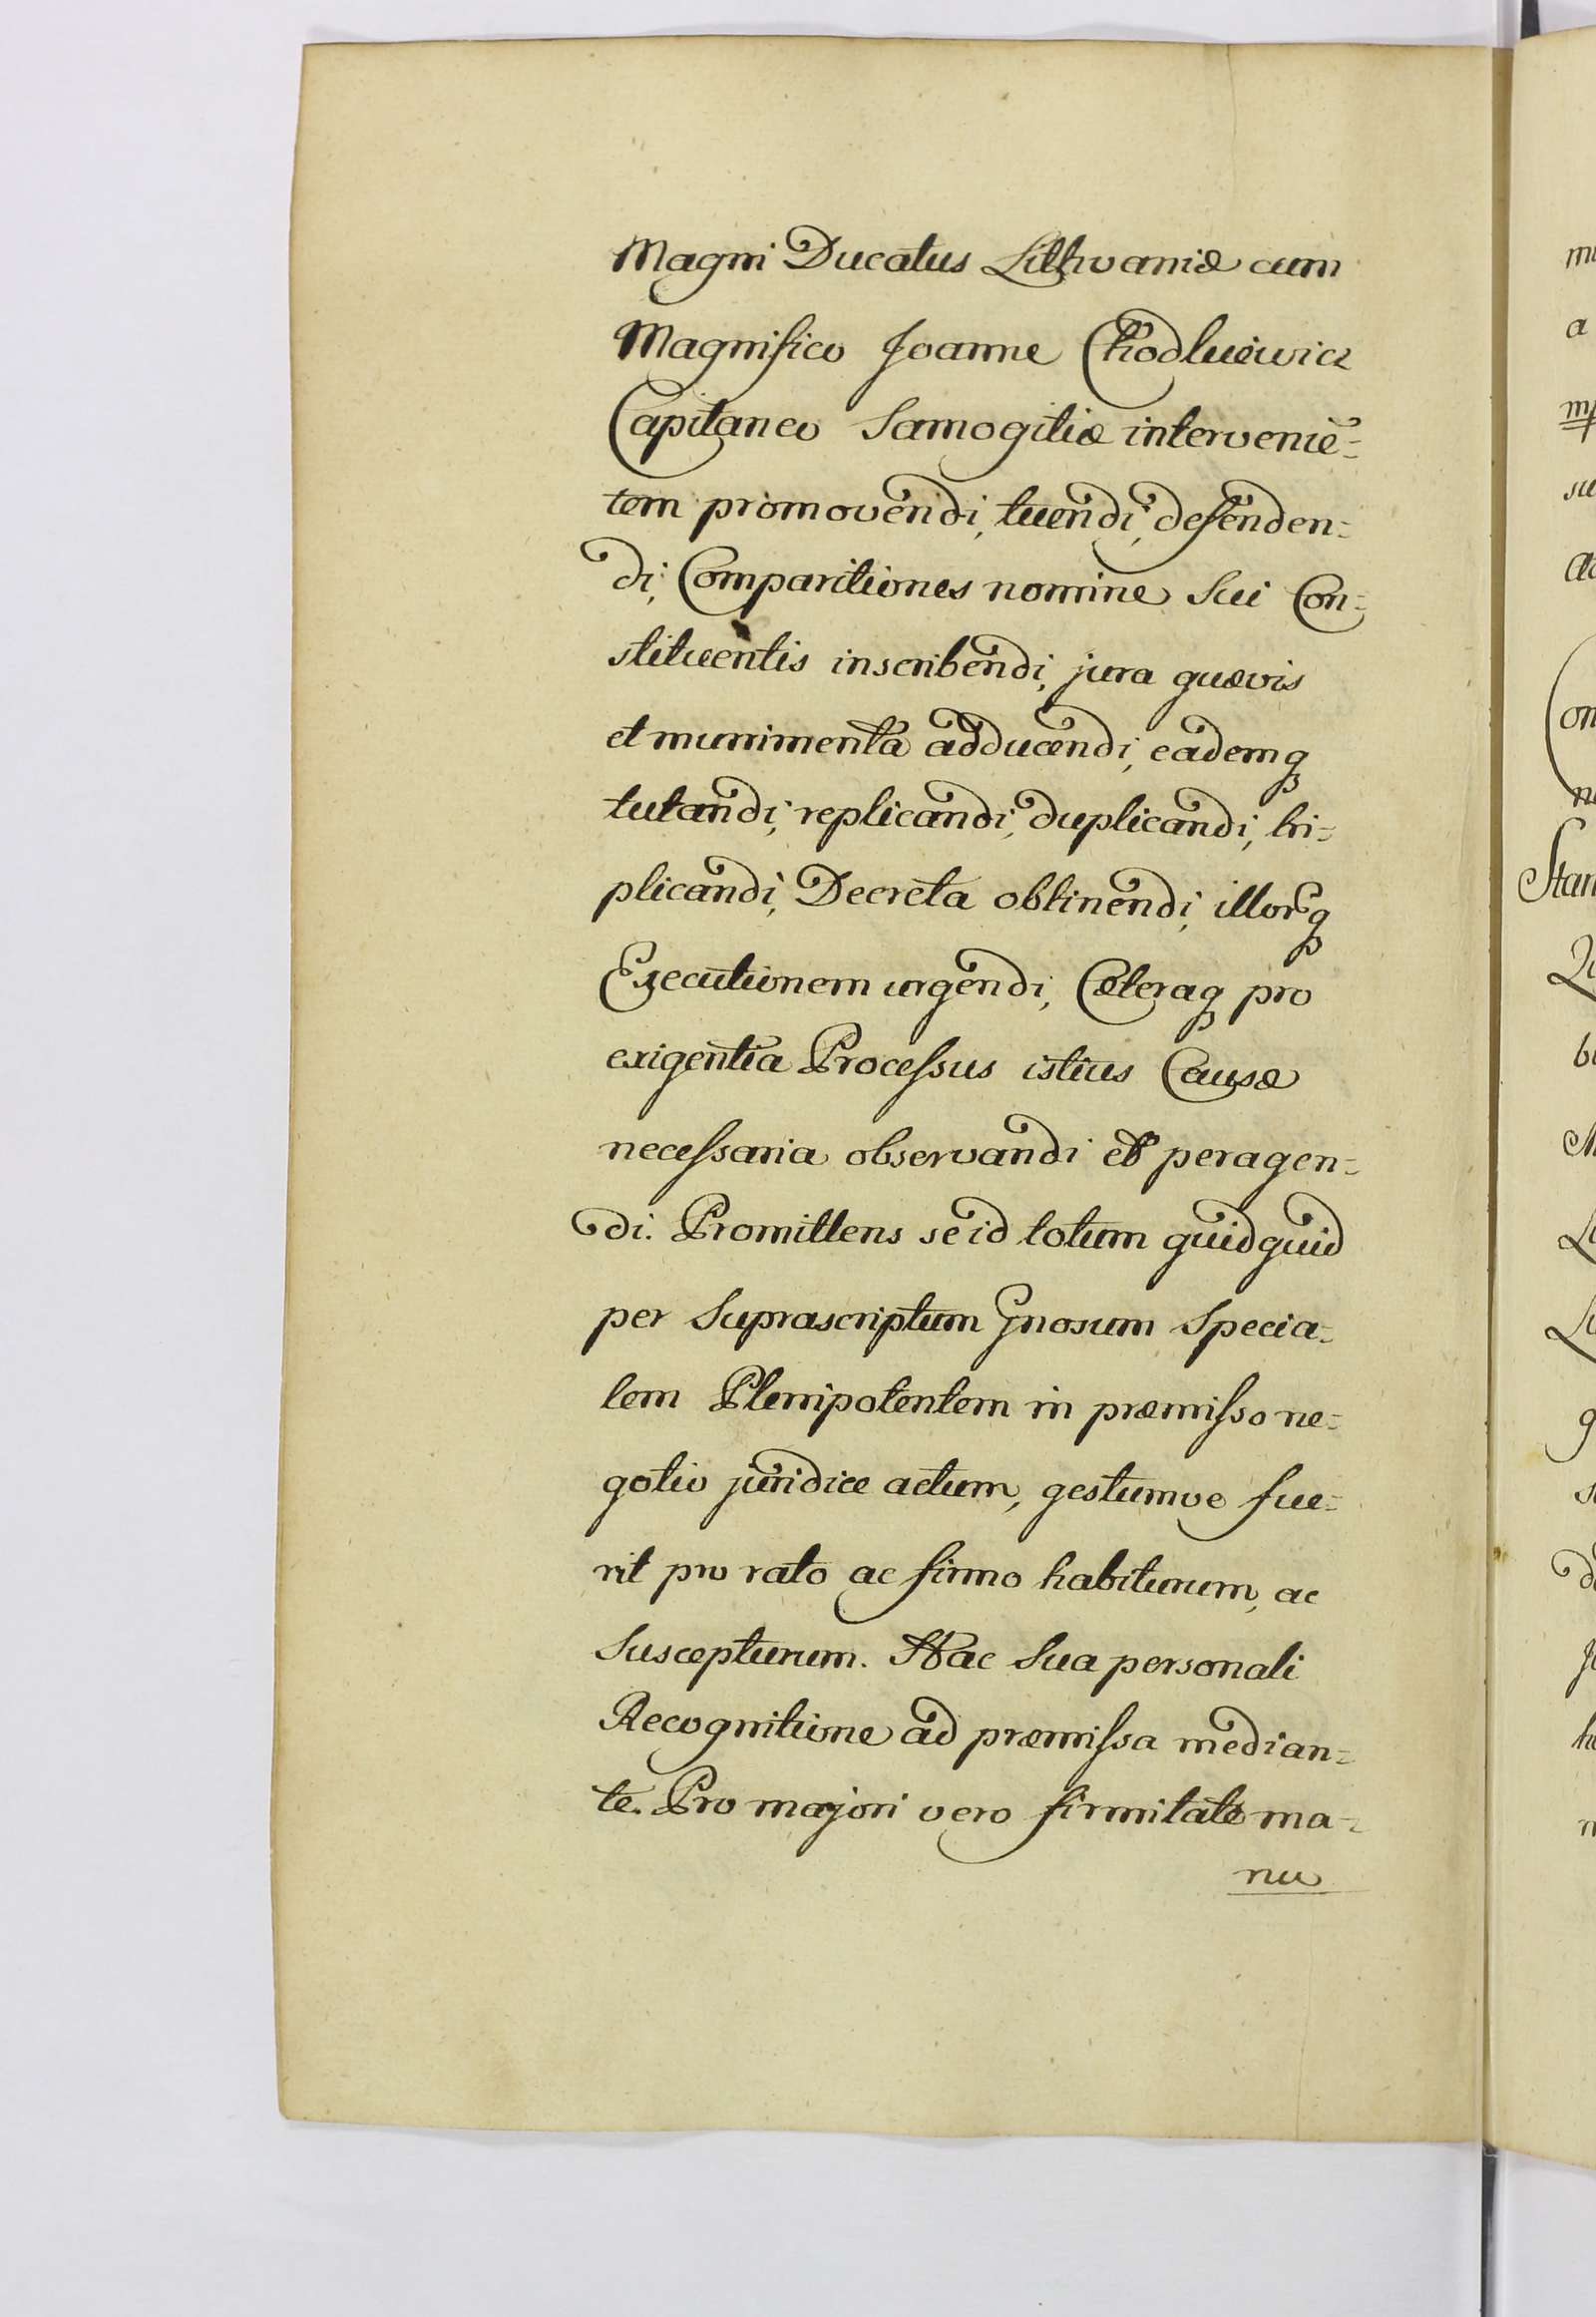 Magni Ducatus Lithvaniæ cum
Magnifico Joanne Chodkiewicz
Capitaneo Samogitiæ interveniē=
tem promovendi, tuendi, defenden=
di, Comparitiones nomine Sui Con=
stituentis inscribendi, jura quævis
et munimenta adducendi, eademq
tutandi, replicandi, duplicandi, tri=
plicandi, Decreta obtinendi, illorq
Executionem urgendi, Cæteraq pro
exigentia Processus istius Causæ
necessaria observandi et peragen=
di. Promittens se id totum quidquid
per Suprascriptum Gnosum Specia=
lem Plenipotentem in præmisso ne=
gotio juridice actum, gestumve fue=
rit pro rato ac firmo habiturum, ac
Suscepturum. Hac Sua personali
Recognitione ad præmissa median=
te. Pro majori vero firmitate ma=
nu